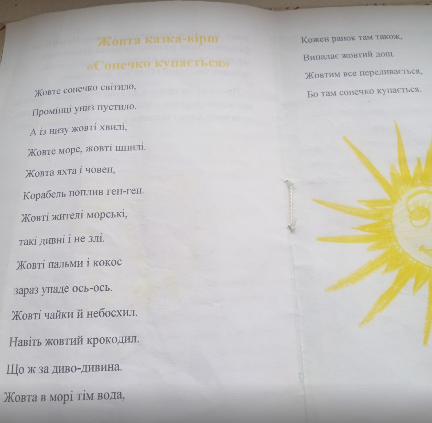 Жовта казка-вірш
«Сонечко купається»
Жовте сонечко світило,
Промінці униз пустило.
А із низу жовті хвилі,
Жовте море, жовті шпилі.
Жовта яхта і човен,
Корабель поплив ген-ген.
Жовті жителі морські,
такі дивні і не злі.
Жовті пальми і кокос
зараз упаде ось-ось.
Жовті чайки й небосхил.
Навіть жовтий крокодил.
Що ж за диво-дивина.
Жовта в морі тім вода,
Кожен ранок там також,
Випадає жовтий дощ.
Жовтим все переливається,
Бо там сонечко купається.